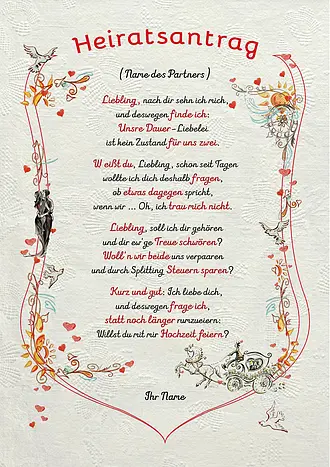 Heiratsantrag
(Name des Partners)
Liebling, nach dir sehn ich mich,
und deswegen finde ich:
Unsre Dauer-Liebelei
ist kein Zustand für uns zwei.
Weißt du, Liebling, schon seit Tagen
wollte ich dich deshalb fragen,
ob etwas dagegen spricht,
wenn wir ... Oh, ich trau mich nicht.
Liebling, soll ich dir gehören
und dir ew'ge Treue schwören?
Woll'n wir beide uns verpaaren
und durch Splitting Steuern sparen?
Kurz und gut: Ich liebe dich,
und deswegen frage ich,
statt noch länger rumzueiern:
Willst du mit mir Hochzeit feiern?
Ihr Name